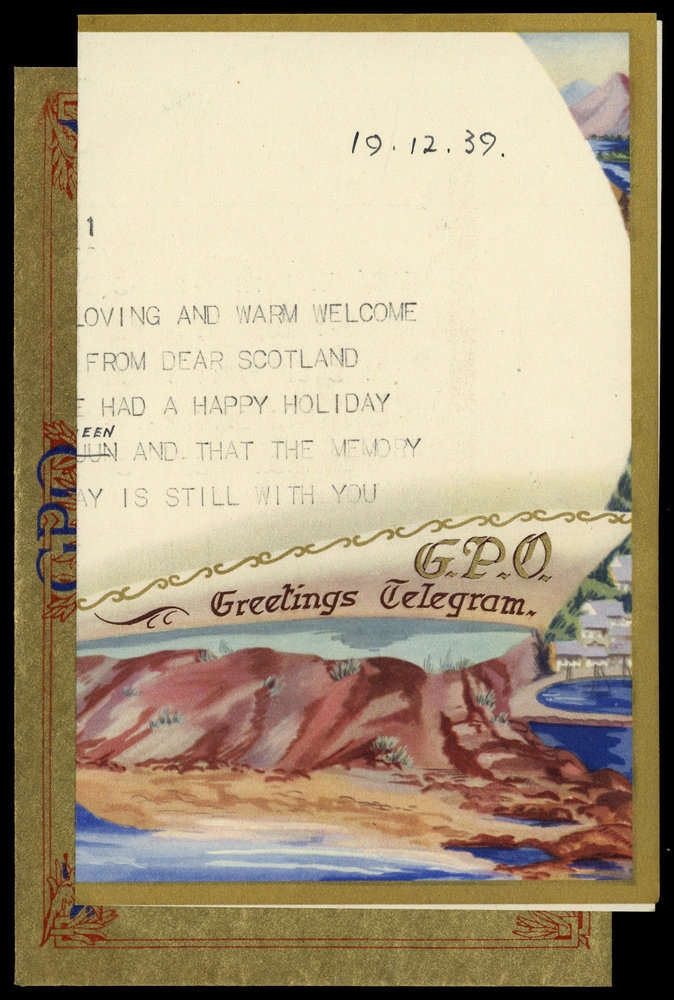 19.12.39.
1
LOVING AND WARM WELCOME
FROM DEAR SCOTLAND
E HAD A HAPPY HOLIDAY
EEN
JUN AND THAT THE MEMORY
AY IS STILL WITH YOU
G.P.O.
Greetings Telegram.
GPO